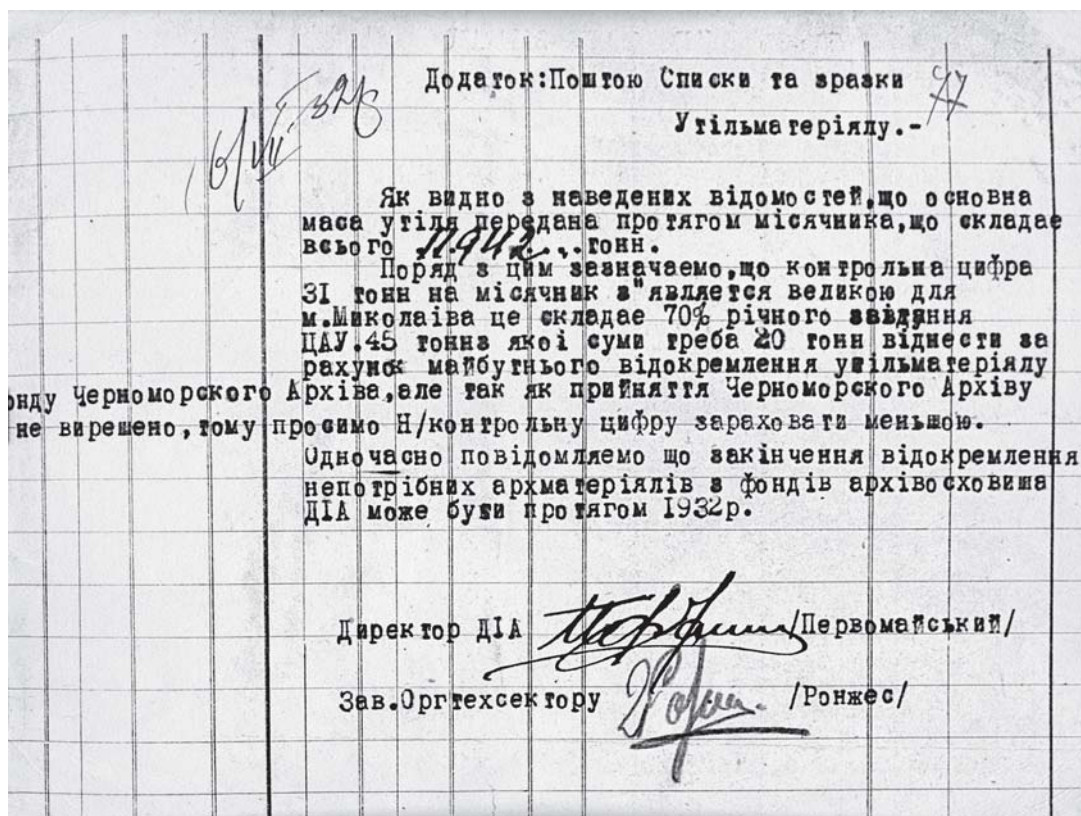 Додаток:Поштою Списки та зразки
77
Утільматеріялу.-
Як видно з наведених відомостей,що основна
маса утіля передана протягом місячника,що складає
всього ... тонн.
Поряд з цим зазначаємо,що контрольна цифра
31 тонн на місячник з"является великою для
м.Миколаіва це складає 70% річного завідання
ЦАУ.45 тонна якоі суми треба 20 тонн віднести за
рахунок майбутнього відокремлення утільматеріялу
онду Черноморского Архіва,але так як прийняття Черноморского Архіву
не вирешено,тому просимо Н/контрольну цифру зараховати меньшою.
Одночасно повідомляемо що закінчення відокремлення
непотрібних архматеріялів з фондів архівосховища
ДІА може бути протягом 1932р.
Директор ДІА /Первомайський/
Зав.Оргтехсектору /Ронжес/